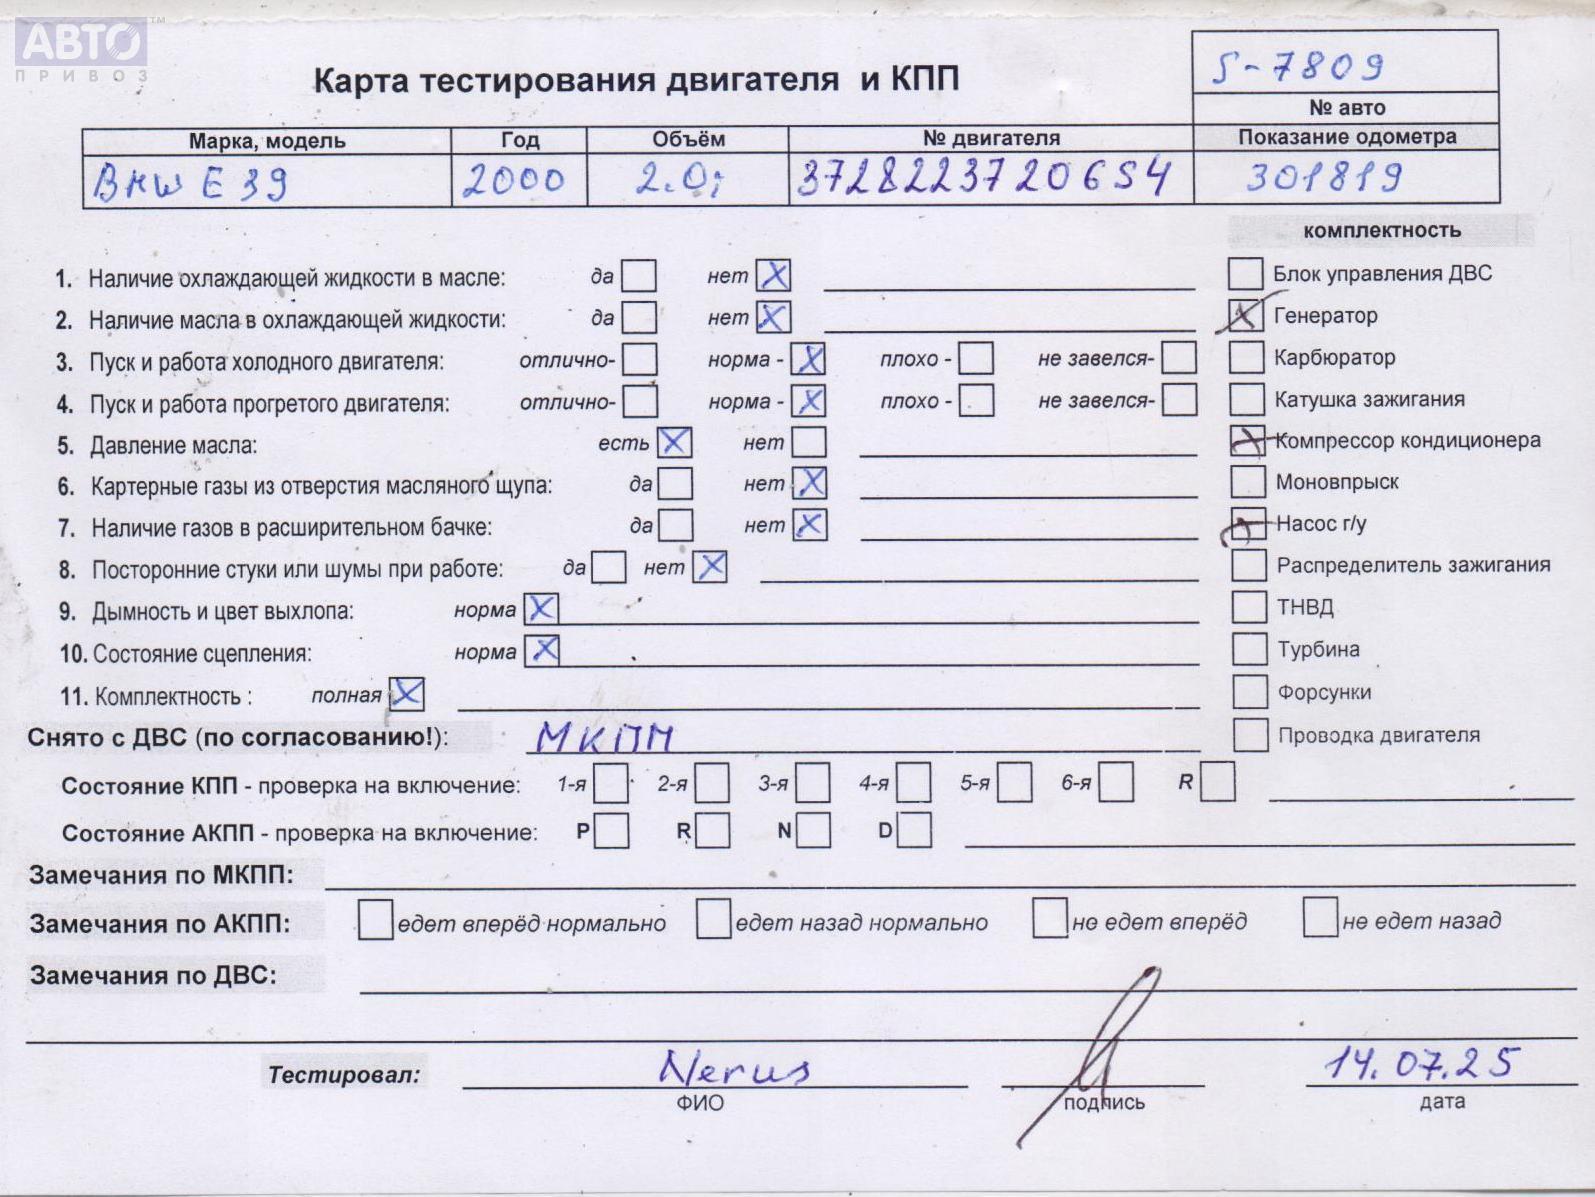 АВТО™
ПРИВОЗ
Карта тестирования двигателя и КПП
S-7809
№ авто
Марка, модель Год Объём № двигателя Показание одометра
BMW E39 2000 2.0i 37282237206S4 301819
комплектность
1. Наличие охлаждающей жидкости в масле: да нет X Блок управления ДВС
2. Наличие масла в охлаждающей жидкости: да нет X X Генератор
3. Пуск и работа холодного двигателя: отлично- норма - X плохо - не завелся- Карбюратор
4. Пуск и работа прогретого двигателя: отлично- норма - X плохо - не завелся- Катушка зажигания
5. Давление масла: есть X нет X Компрессор кондиционера
6. Картерные газы из отверстия масляного щупа: да нет X Моновпрыск
7. Наличие газов в расширительном бачке: да нет X X Насос г/у
8. Посторонние стуки или шумы при работе: да нет X Распределитель зажигания
9. Дымность и цвет выхлопа: норма X ТНВД
10. Состояние сцепления: норма X Турбина
11. Комплектность : полная X Форсунки
Снято с ДВС (по согласованию!): МКПП Проводка двигателя
Состояние КПП - проверка на включение: 1-я 2-я 3-я 4-я 5-я 6-я R
Состояние АКПП - проверка на включение: P R N D
Замечания по МКПП:
Замечания по АКПП: едет вперёд нормально едет назад нормально не едет вперёд не едет назад
Замечания по ДВС:
Тестировал: Nerus 14.07.25
ФИО подпись дата